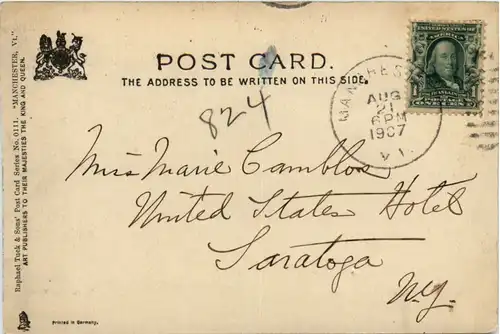 POST CARD.
THE ADDRESS TO BE WRITTEN ON THIS SIDE.
Raphael Tuck & Sons' Post Card Series No. 0111. "MANCHESTER, Vt."
ART PUBLISHERS TO THEIR MAJESTIES THE KING AND QUEEN.
MANCHES
AUG
21
6 PM
1907
VT.
824
Miss Marie Camblos
United States Hotel
Saratoga
N.Y.
Printed in Germany.